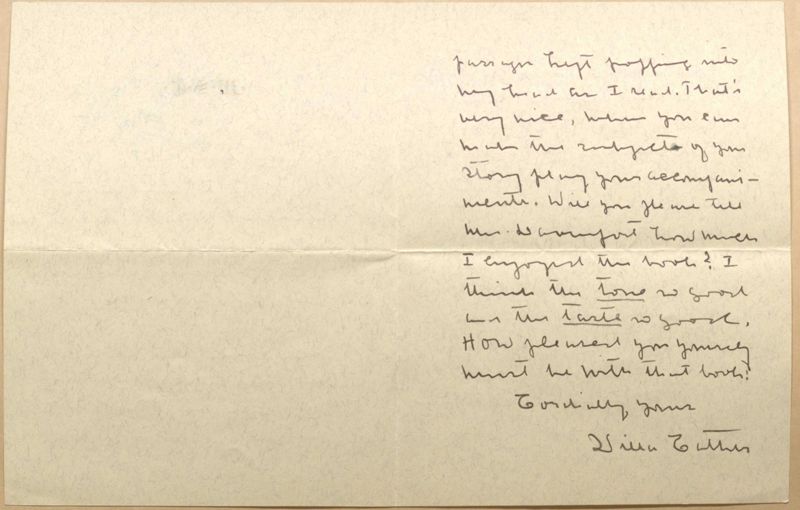 passages kept popping into
my head as I read. That's
very nice, when you can
make the subject of your
story play your accompani-
ments. Will you please tell
Mrs. Davenport how much
I enjoyed the book? I
think the tone so good
and the taste so good.
How pleased you yourself
must be with that book!
Cordially yours
Willa Cather